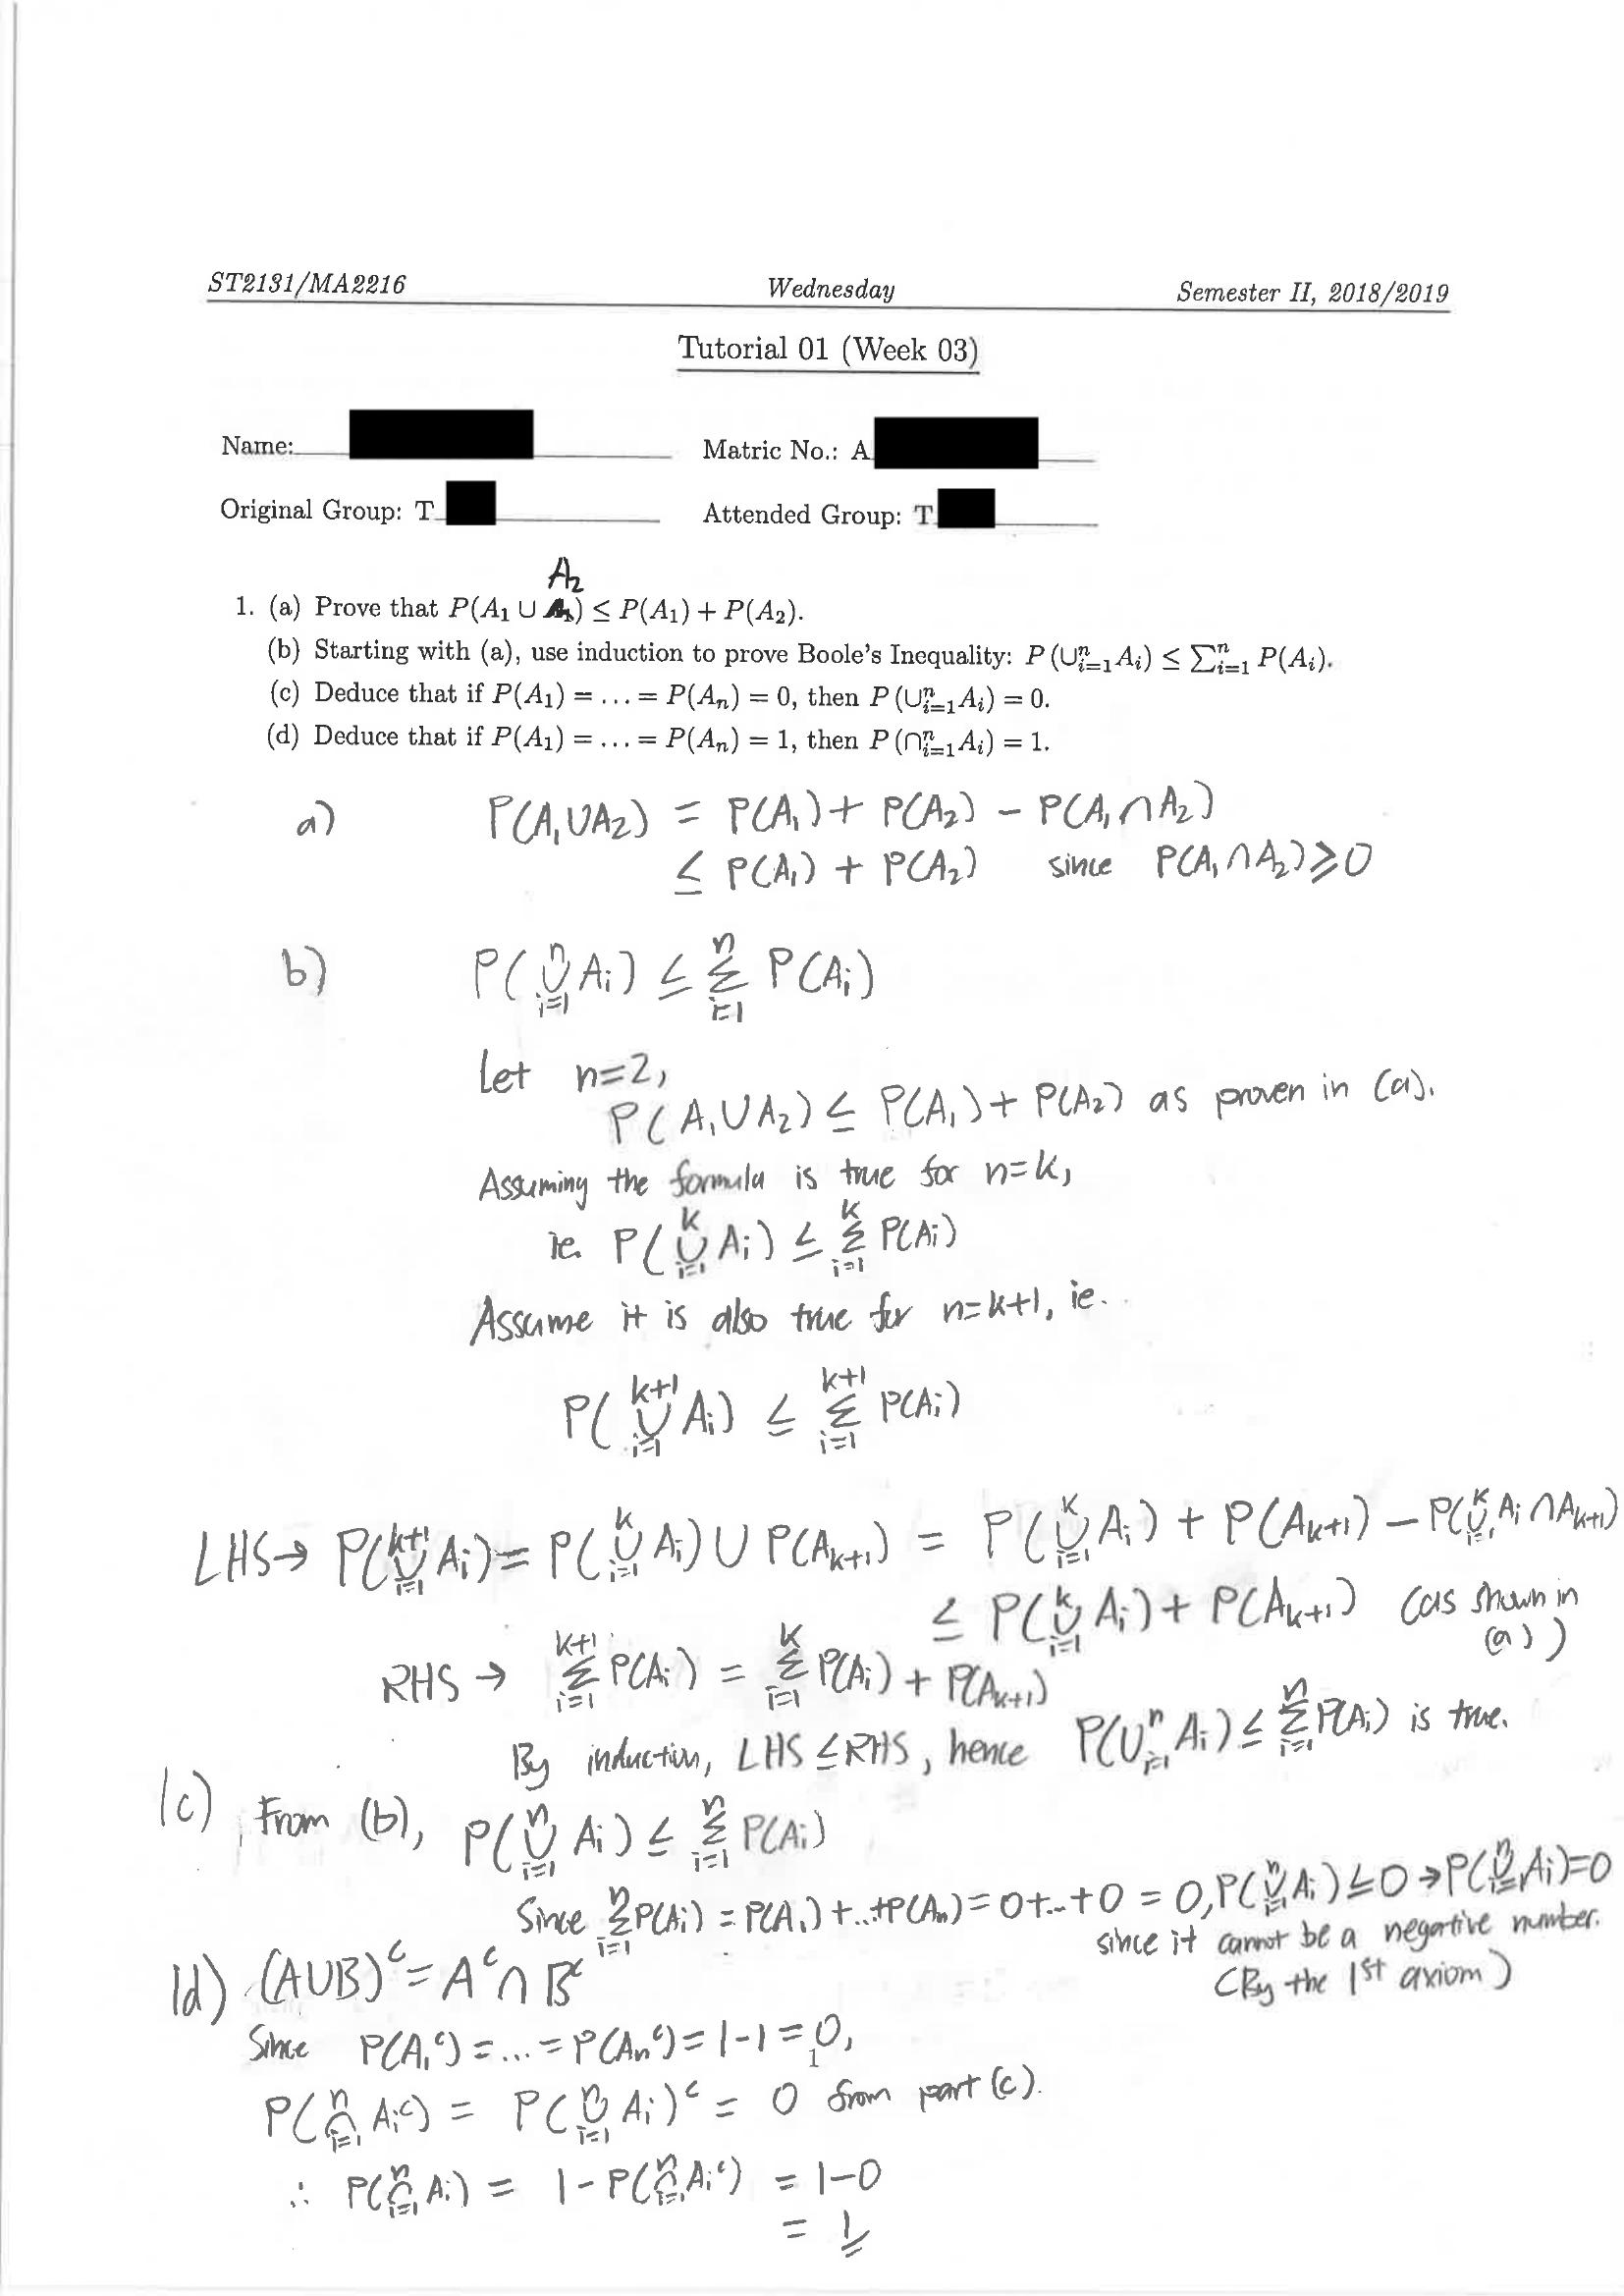 ST2131/MA2216 Wednesday Semester II, 2018/2019
Tutorial 01 (Week 03)
Name: Matric No.: A
Original Group: T Attended Group: T
A₂
1. (a) Prove that P(A₁ ∪ ) ≤ P(A₁) + P(A₂).
(b) Starting with (a), use induction to prove Boole's Inequality: P (∪ⁿᵢ₌₁Aᵢ) ≤ ∑ⁿᵢ₌₁ P(Aᵢ).
(c) Deduce that if P(A₁) = ... = P(Aₙ) = 0, then P (∪ⁿᵢ₌₁Aᵢ) = 0.
(d) Deduce that if P(A₁) = ... = P(Aₙ) = 1, then P (∩ⁿᵢ₌₁Aᵢ) = 1.
a) P(A₁∪A₂) = P(A₁) + P(A₂) − P(A₁∩A₂)
≤ P(A₁) + P(A₂) since P(A₁∩A₂) ≥ 0
b) P(∪ⁿᵢ₌₁ Aᵢ) ≤ ∑ⁿᵢ₌₁ P(Aᵢ)
Let n=2,
P(A₁∪A₂) ≤ P(A₁) + P(A₂) as proven in (a).
Assuming the formula is true for n=k,
ie. P(∪ᵏᵢ₌₁ Aᵢ) ≤ ∑ᵏᵢ₌₁ P(Aᵢ)
Assume it is also true for n=k+1, ie..
P(∪ᵏ⁺¹ᵢ₌₁ Aᵢ) ≤ ∑ᵏ⁺¹ᵢ₌₁ P(Aᵢ)
LHS → P(∪ᵏ⁺¹ᵢ₌₁ Aᵢ) = P(∪ᵏᵢ₌₁ Aᵢ) ∪ P(Aₖ₊₁) = P(∪ᵏᵢ₌₁ Aᵢ) + P(Aₖ₊₁) − P(∪ᵏᵢ₌₁ Aᵢ ∩ Aₖ₊₁)
≤ P(∪ᵏᵢ₌₁ Aᵢ) + P(Aₖ₊₁) (as shown in (a))
RHS → ∑ᵏ⁺¹ᵢ₌₁ P(Aᵢ) = ∑ᵏᵢ₌₁ P(Aᵢ) + P(Aₖ₊₁)
By induction, LHS ≤ RHS, hence P(∪ⁿᵢ₌₁ Aᵢ) ≤ ∑ⁿᵢ₌₁ P(Aᵢ) is true.
1c) From (b), P(∪ⁿᵢ₌₁ Aᵢ) ≤ ∑ⁿᵢ₌₁ P(Aᵢ)
Since ∑ⁿᵢ₌₁ P(Aᵢ) = P(A₁) + ... + P(Aₙ) = 0+...+0 = 0, P(∪ⁿᵢ₌₁ Aᵢ) ≤ 0 → P(∪ⁿᵢ₌₁ Aᵢ) = 0
since it cannot be a negative number.
(By the 1st axiom)
1d) (A∪B)ᶜ = Aᶜ ∩ Bᶜ
Since P(A₁ᶜ) = ... = P(Aₙᶜ) = 1−1 = 0,
P(∩ⁿᵢ₌₁ Aᵢᶜ) = P(∪ⁿᵢ₌₁ Aᵢ)ᶜ = 0 from part (c).
∴ P(∩ⁿᵢ₌₁ Aᵢ) = 1 − P(∩ⁿᵢ₌₁ Aᵢᶜ) = 1−0
= 1